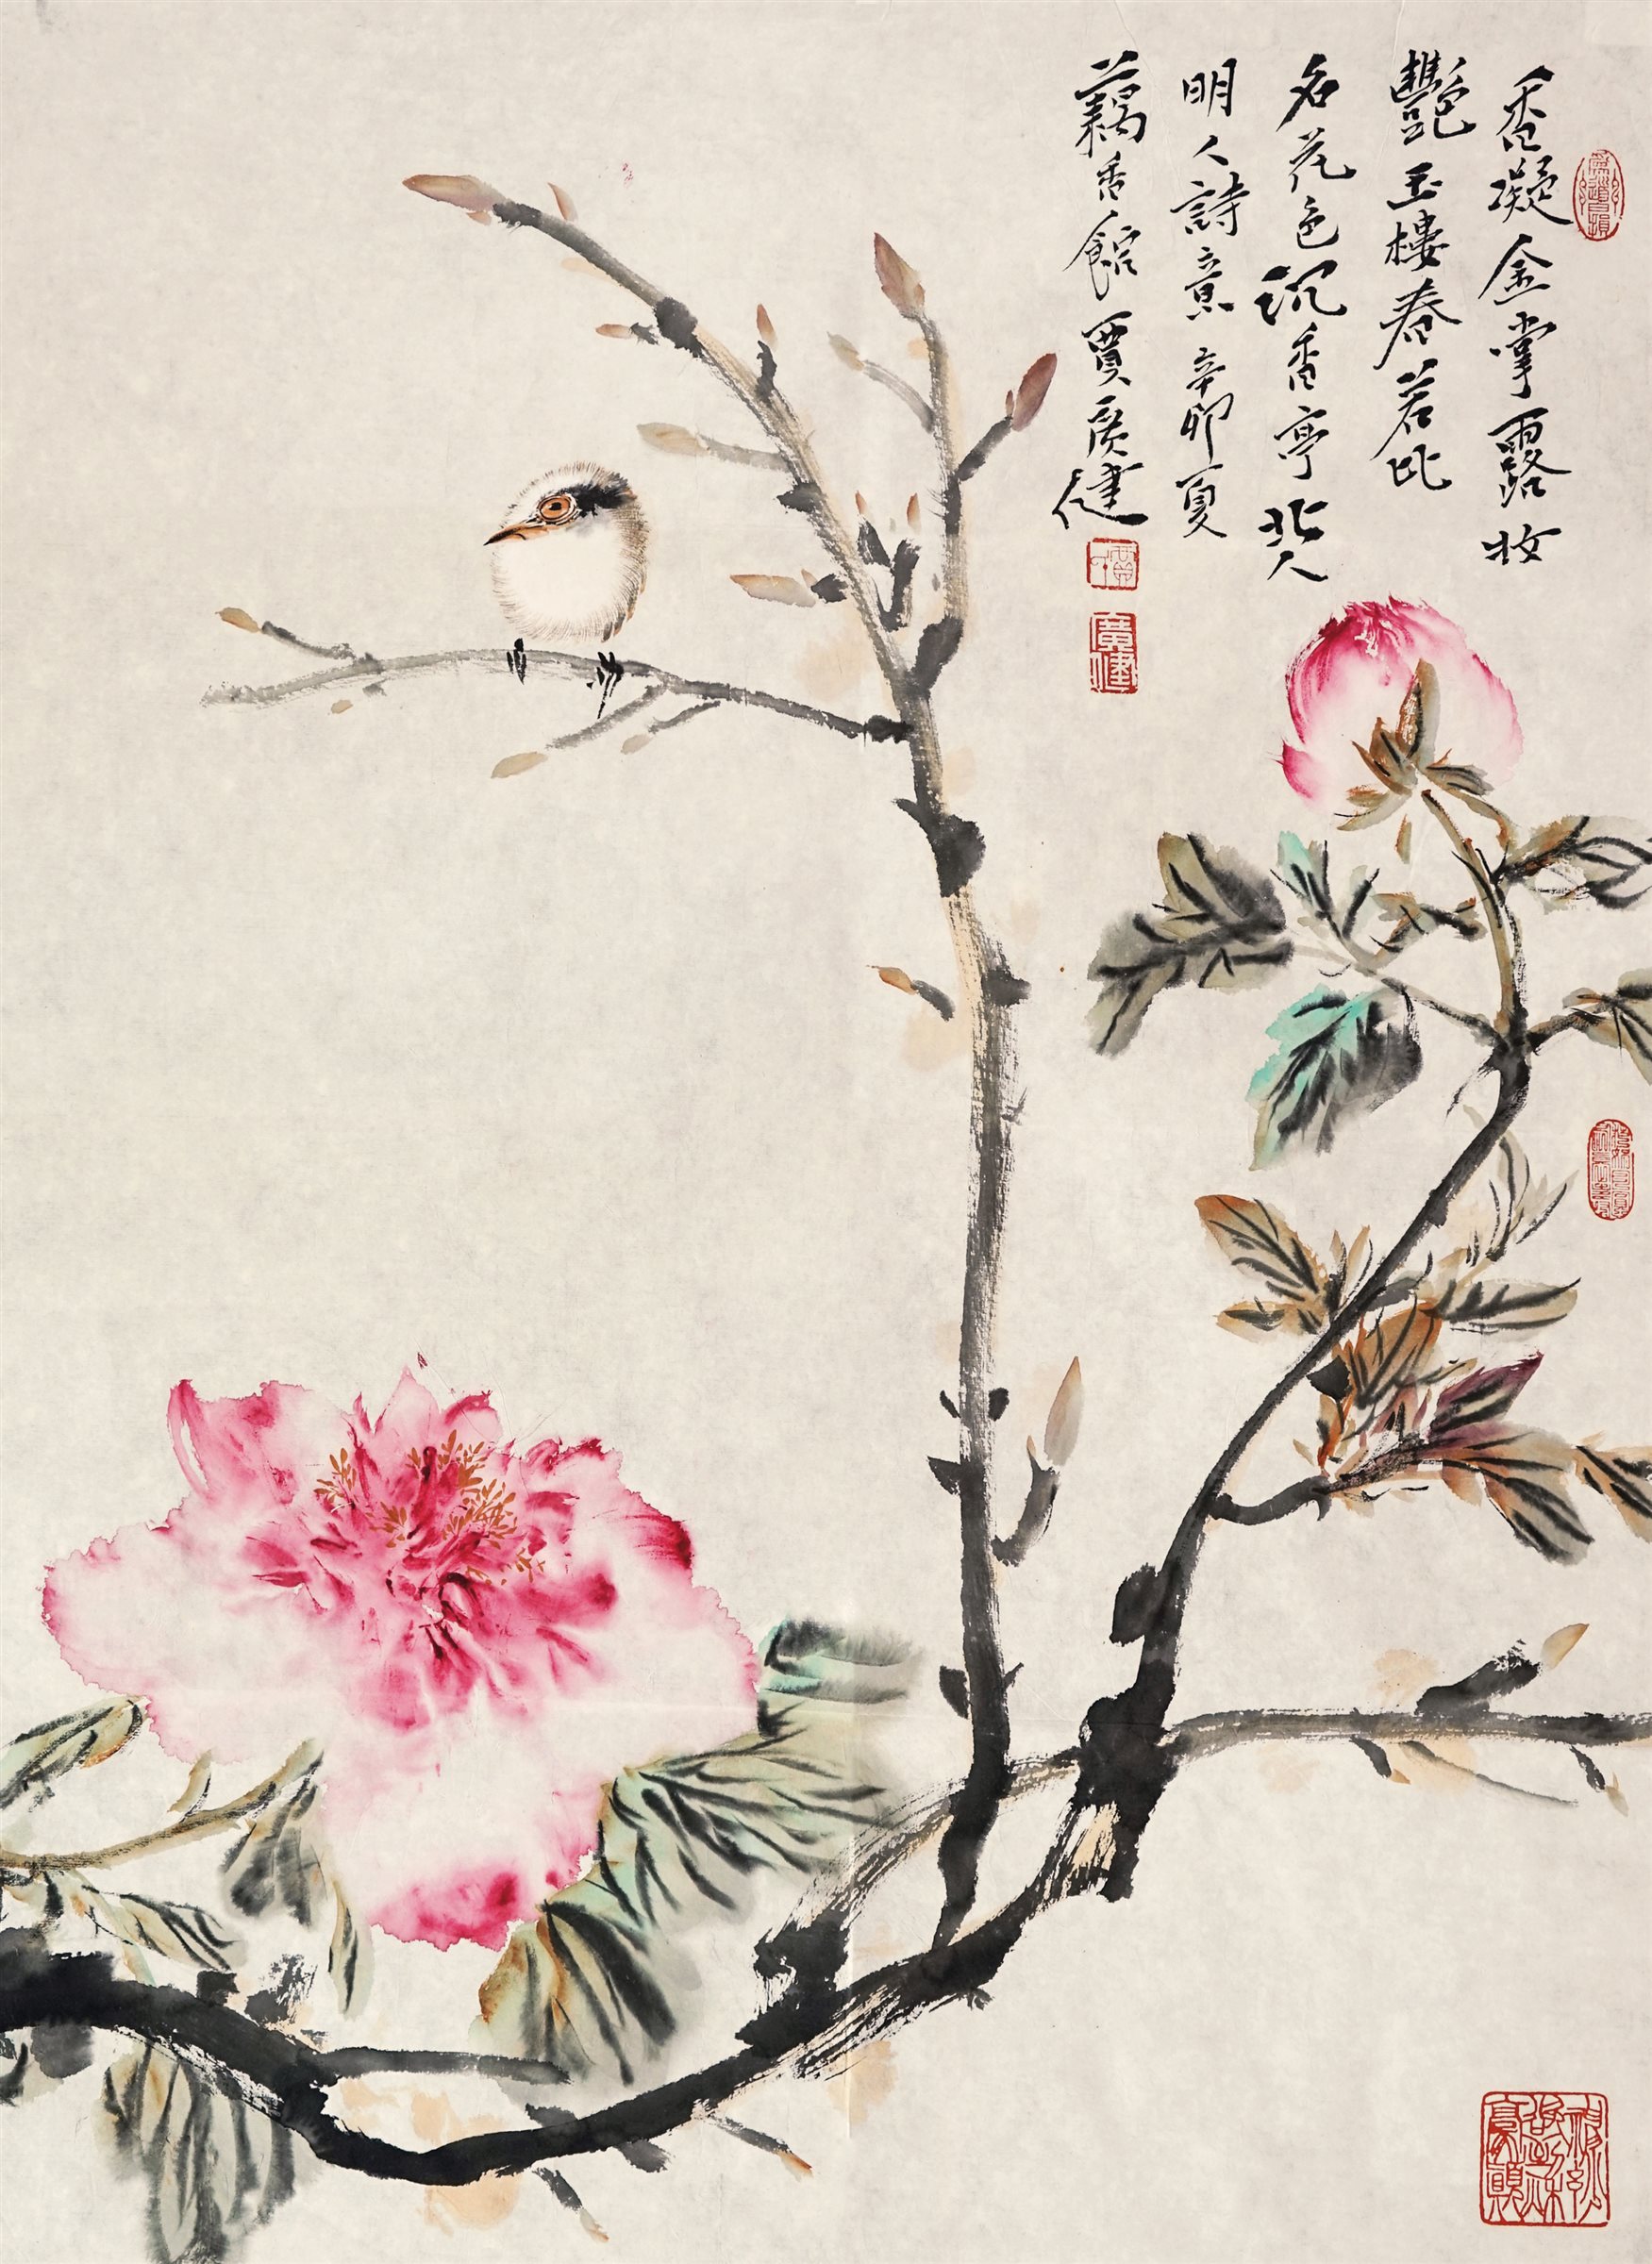 香凝金掌露妆
艷玉樓春若比
名花色沉香亭北人
明人詩意 辛卯夏
藕香館 賈廣健
賈
廣健